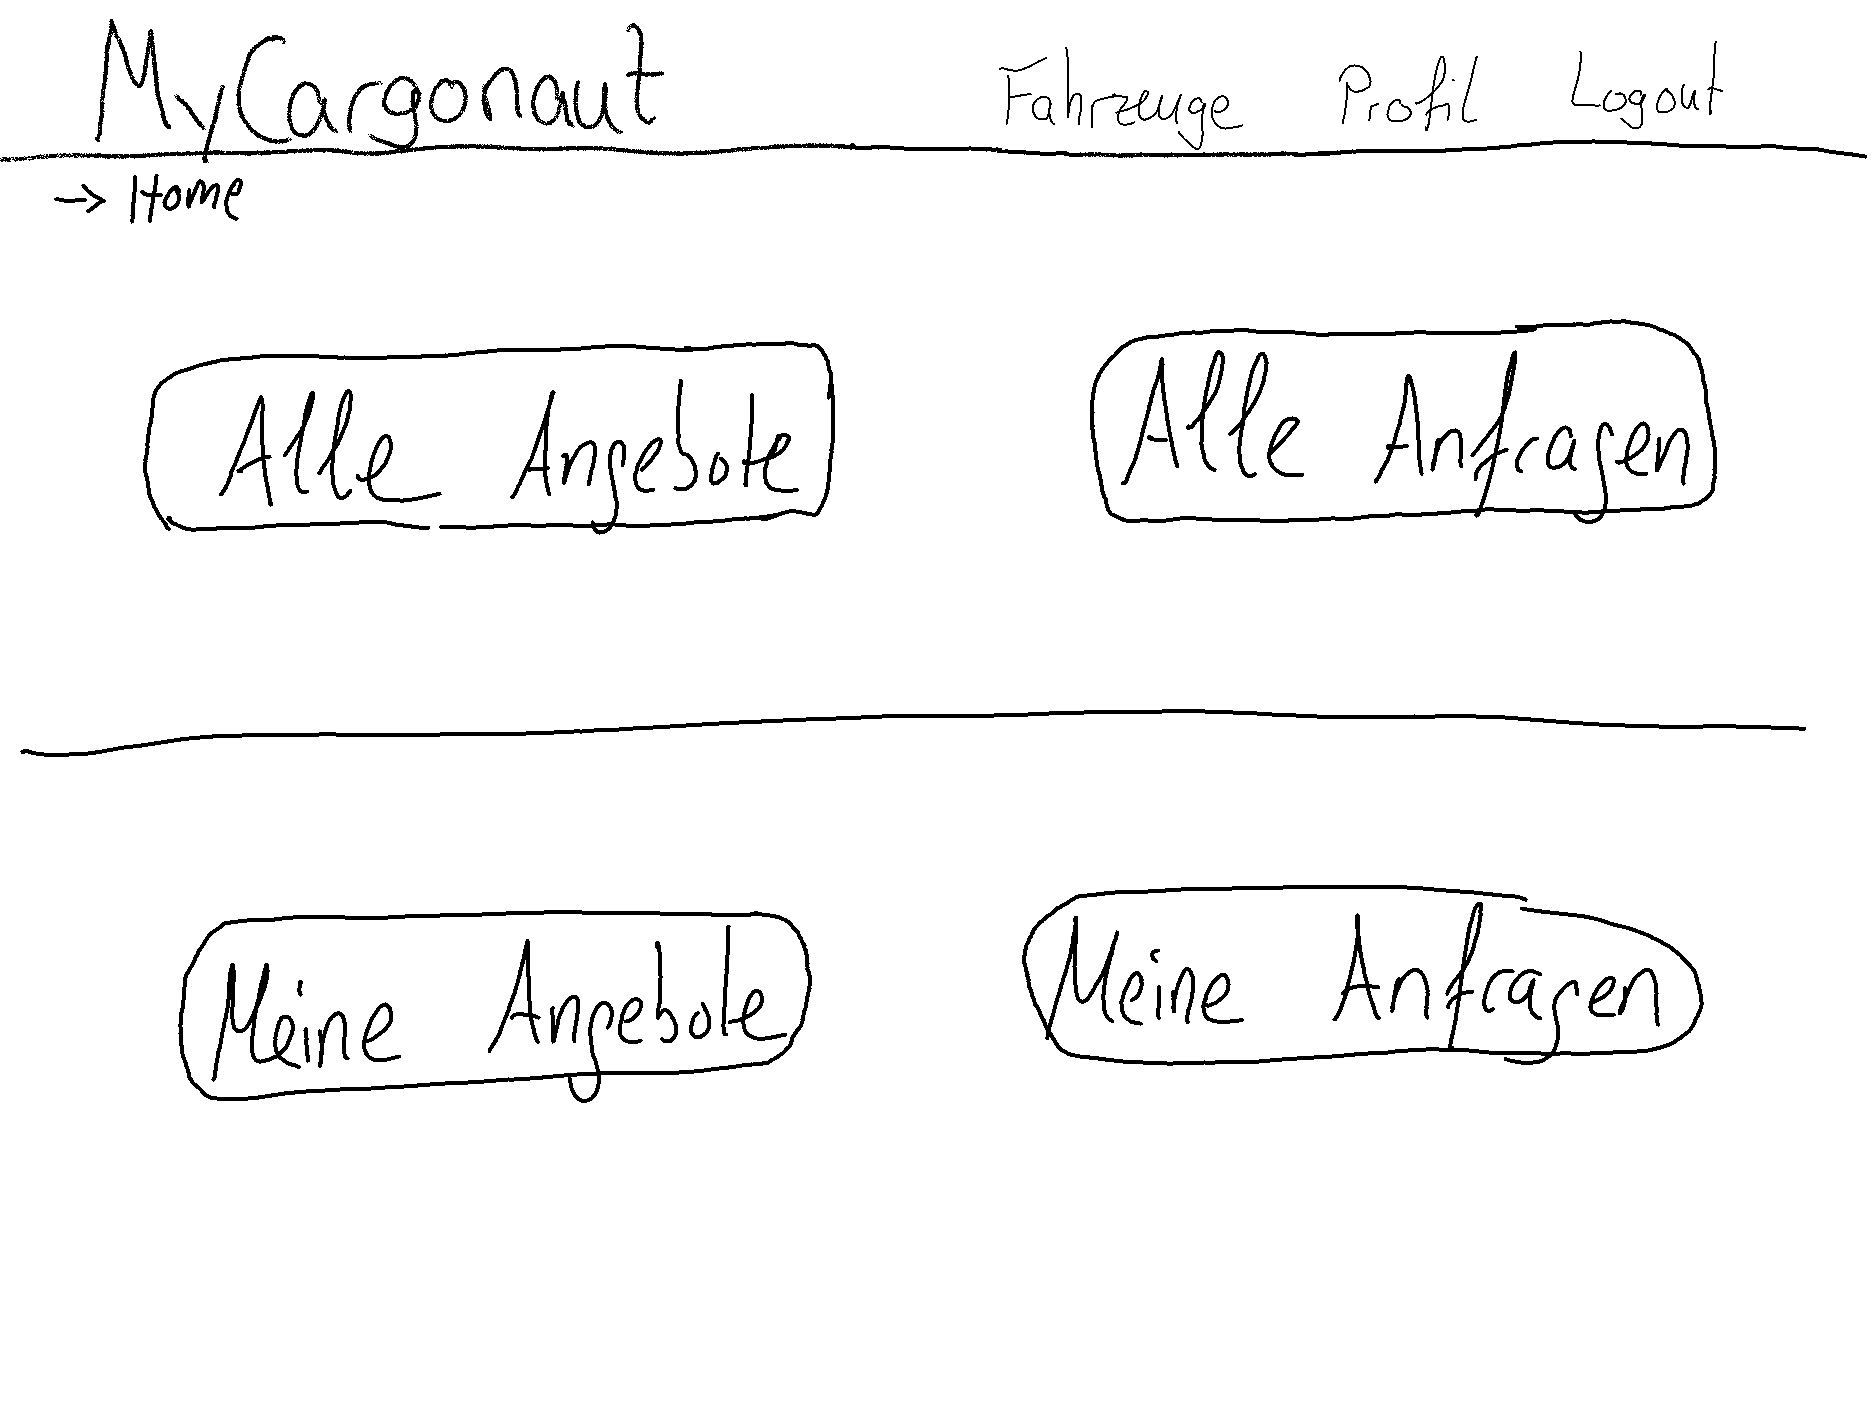 MyCargonaut Fahrzeuge Profil Logout
→ Home
Alle Angebote Alle Anfragen
Meine Angebote Meine Anfragen